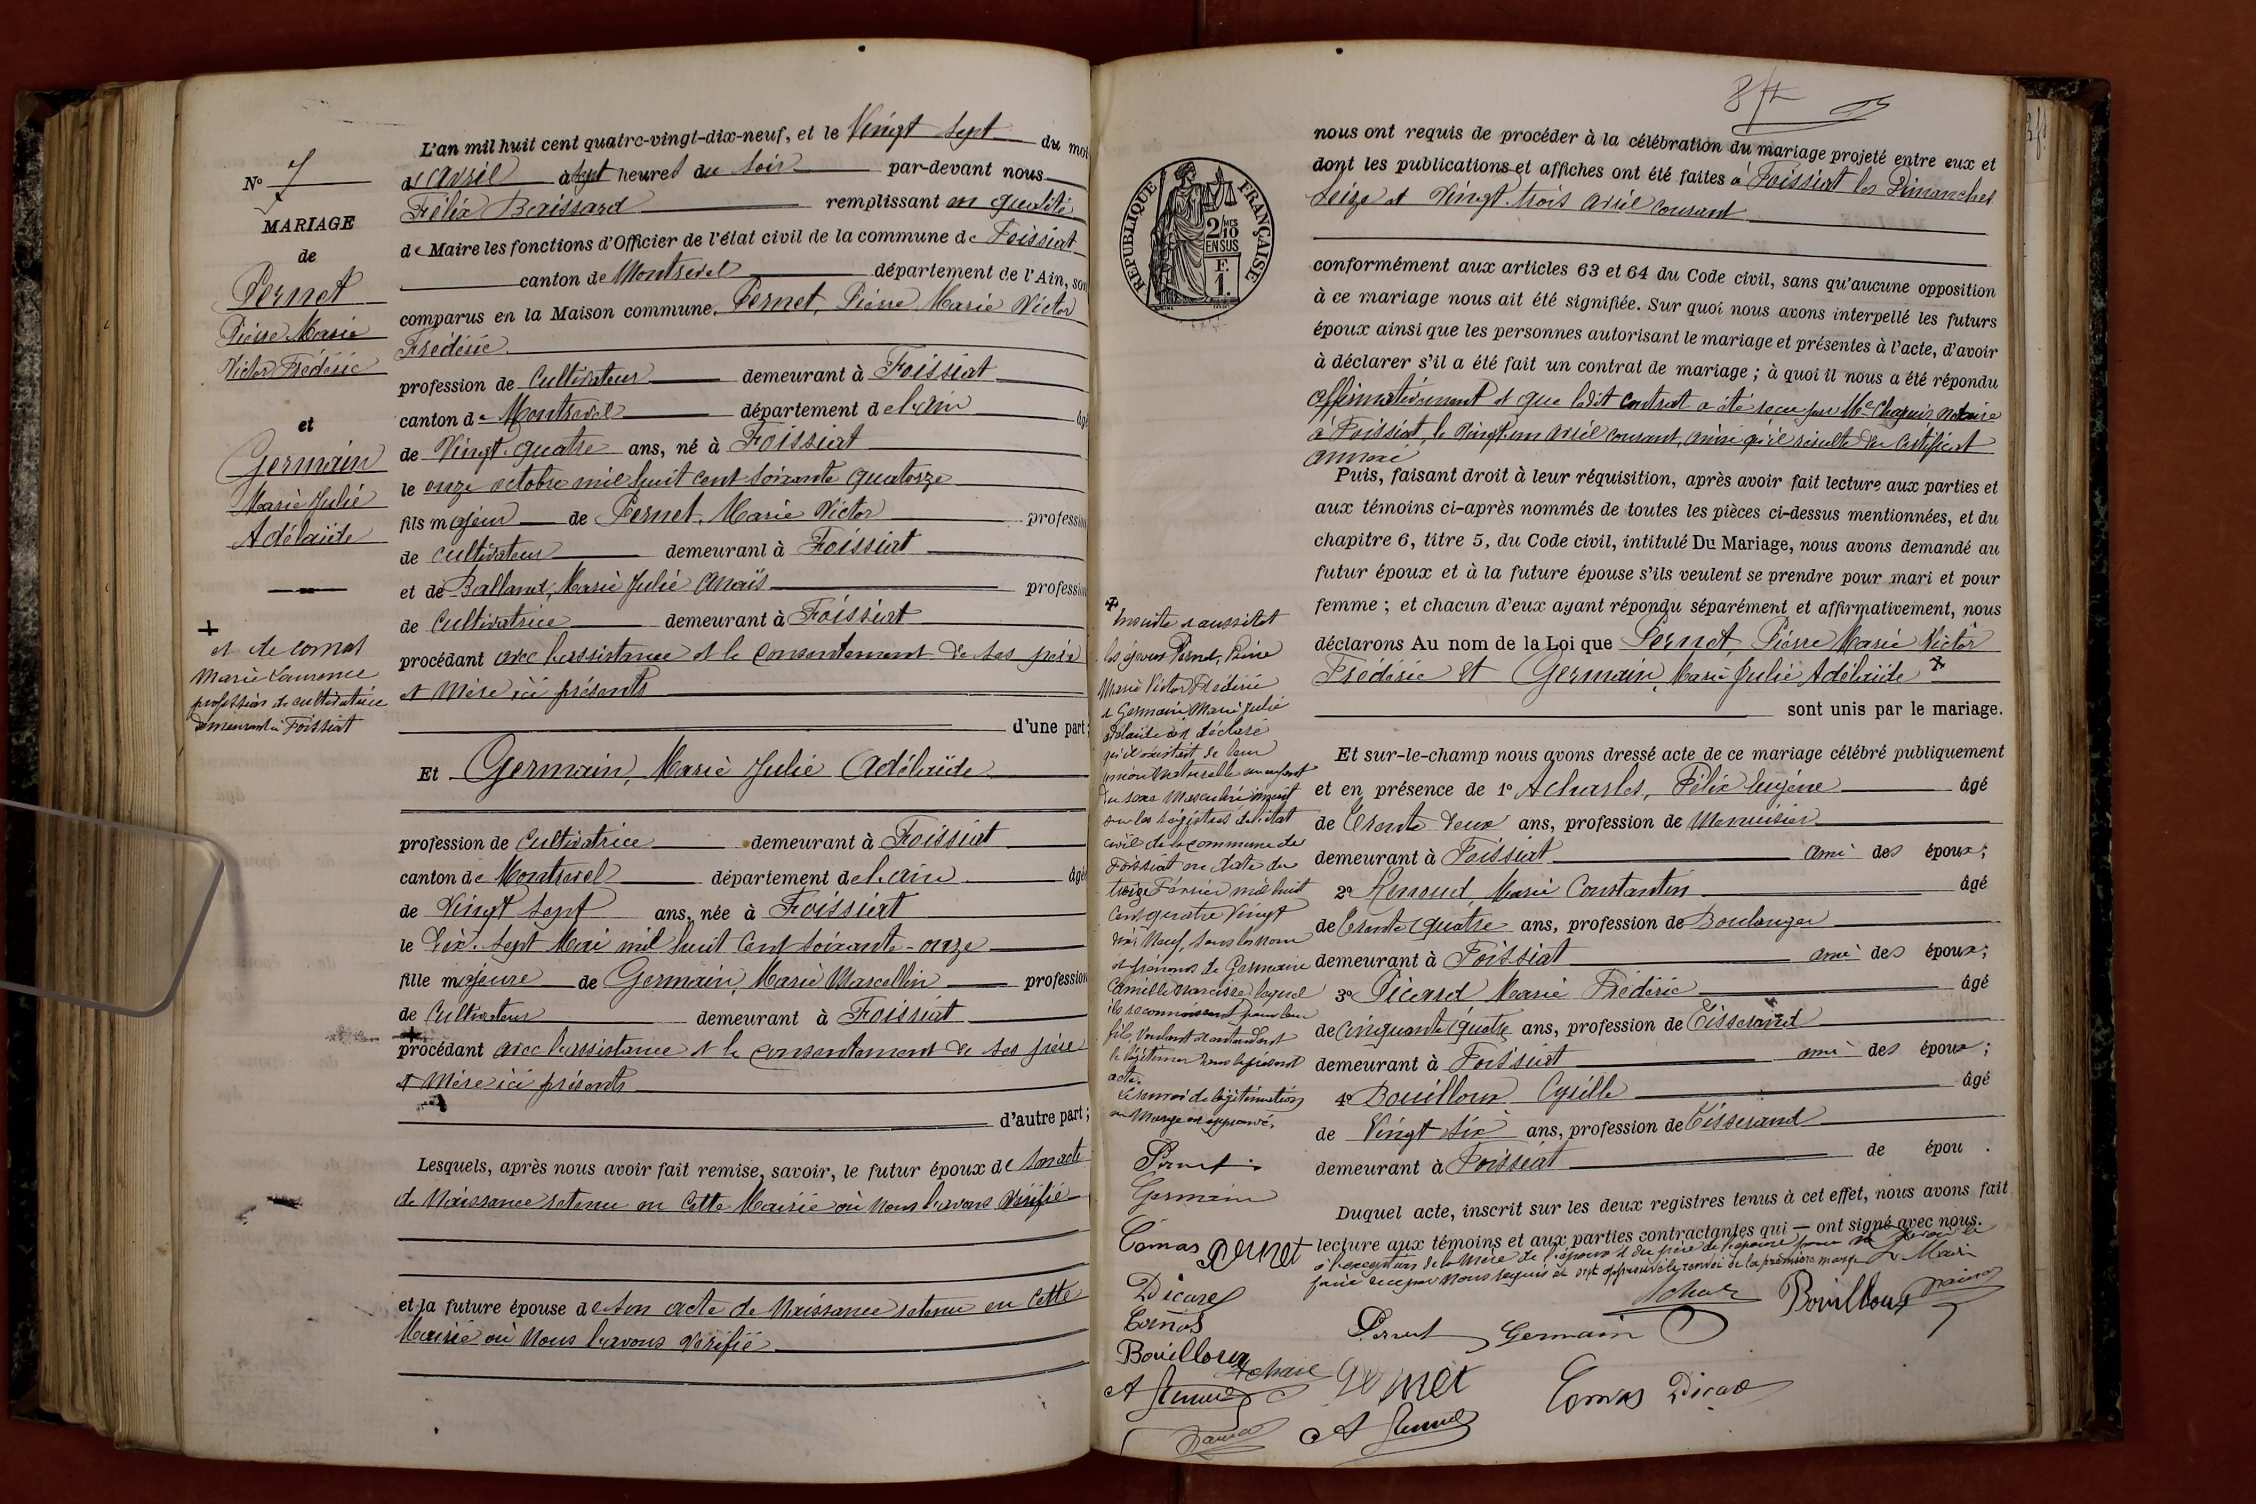 N° 7
MARIAGE
de
Pernet
Pierre Marie
Victor Frédéric
et
Germain
Marie Julie
Adélaïde
+
et de Comas
Marie Laurence
profession de cultivatrice
demeurant à Foissiat
L'an mil huit cent quatre-vingt-dix-neuf, et le Vingt Sept du moi
d'avril à Sept heures du Soir par-devant nous
Félix Boissard remplissant en qualité
de Maire les fonctions d'Officier de l'état civil de la commune de Foissiat
canton de Montrevel département de l'Ain, son
comparus en la Maison commune, Pernet, Pierre Marie Victor
Frédéric
profession de Cultivateur demeurant à Foissiat
canton de Montrevel département de l'ain âgé
de Vingt-quatre ans, né à Foissiat
le onze octobre mil huit cent soixante quatorze
fils majeur de Pernet, Marie Victor profession
de cultivateur demeurant à Foissiat
et de Balland, Marie Julie Anaïs profession
de Cultivatrice demeurant à Foissiat
procédant avec l'assistance et le consentement de ses père
et Mère ici présents
d'une part;
Et Germain, Marie Julie Adélaïde
profession de Cultivatrice demeurant à Foissiat
canton de Montrevel département de l'ain âgé
de Vingt Sept ans, née à Foissiat
le Dix-Sept Mai mil huit Cent soixante-onze
fille majeure de Germain, Marie Marcellin profession
de Cultivateur demeurant à Foissiat
+
procédant avec l'assistance et le consentement de ses père
et Mère ici présents
d'autre part;
Lesquels, après nous avoir fait remise, savoir, le futur époux de Son acte
de Naissance retenu en Cette Mairie où Nous l'avons Vérifié
et la future épouse de Son acte de Naissance retenu en Cette
Mairie où Nous l'avons Vérifié
RÉPUBLIQUE FRANÇAISE
2/10
EN SUS
F.
1.
nous ont requis de procéder à la célébration du mariage projeté entre eux et
dont les publications et affiches ont été faites à Foissiat les Dimanches
Seize et Vingt-trois avril courant
conformément aux articles 63 et 64 du Code civil, sans qu'aucune opposition
à ce mariage nous ait été signifiée. Sur quoi nous avons interpellé les futurs
époux ainsi que les personnes autorisant le mariage et présentes à l'acte, d'avoir
à déclarer s'il a été fait un contrat de mariage ; à quoi il nous a été répondu
affirmativement et que ledit contrat a été reçu par Me Chapuis notaire
à Foissiat, le vingt-un avril courant, ainsi qu'il résulte du Certificat
annexé
Puis, faisant droit à leur réquisition, après avoir fait lecture aux parties et
aux témoins ci-après nommés de toutes les pièces ci-dessus mentionnées, et du
chapitre 6, titre 5, du Code civil, intitulé Du Mariage, nous avons demandé au
futur époux et à la future épouse s'ils veulent se prendre pour mari et pour
femme ; et chacun d'eux ayant répondu séparément et affirmativement, nous
déclarons Au nom de la Loi que Pernet, Pierre Marie Victor
Frédéric et Germain, Marie Julie Adélaïde +
sont unis par le mariage.
Et sur-le-champ nous avons dressé acte de ce mariage célébré publiquement
et en présence de 1° Acharles, Félix Eugène âgé
de Trente Deux ans, profession de Menuisier
demeurant à Foissiat ami des époux;
2° Renoud, Marie Constantin âgé
de Trente quatre ans, profession de Boulanger
demeurant à Foissiat ami des époux;
3° Picard Marie Frédéric âgé
de Cinquante quatre ans, profession de Tisserand
demeurant à Foissiat ami des époux;
4° Bouilloux Cyrille âgé
de Vingt Six ans, profession de Tisserand
demeurant à Foissiat de épou .
Duquel acte, inscrit sur les deux registres tenus à cet effet, nous avons fait
lecture aux témoins et aux parties contractantes qui — ont signé avec nous.
à l'exception de la Mère de l'époux et du père de l'épouse pour ne Savoir le
faire de ce par Nous requis et ont approuvé le renvoi de la première marge Le Maire
+
Ensuite et aussitôt
les époux Pernet, Pierre
Marie Victor Frédéric
et Germain Marie Julie
Adélaïde ont déclaré
qu'il existait de leur
union naturelle un enfant
du sexe Masculin inscrit
sur les registres de l'état
civil de la commune de
Foissiat en date du
treize Février mil huit
Cent quatre Vingt
dix Neuf, sous les nom
et prénoms de Germain
Camille Narcisse, lequel
ils reconnaissent pour leur
fils, Voulant et entendant
le légitimer dans le présent
acte.
Le renvoi de légitimation
en Marge est approuvé.
Pernet
Germain
Comas Pernet
Picard
Comas
Bouilloux
Bouilloux
Pernet Germain
Pernet
Comas Picard